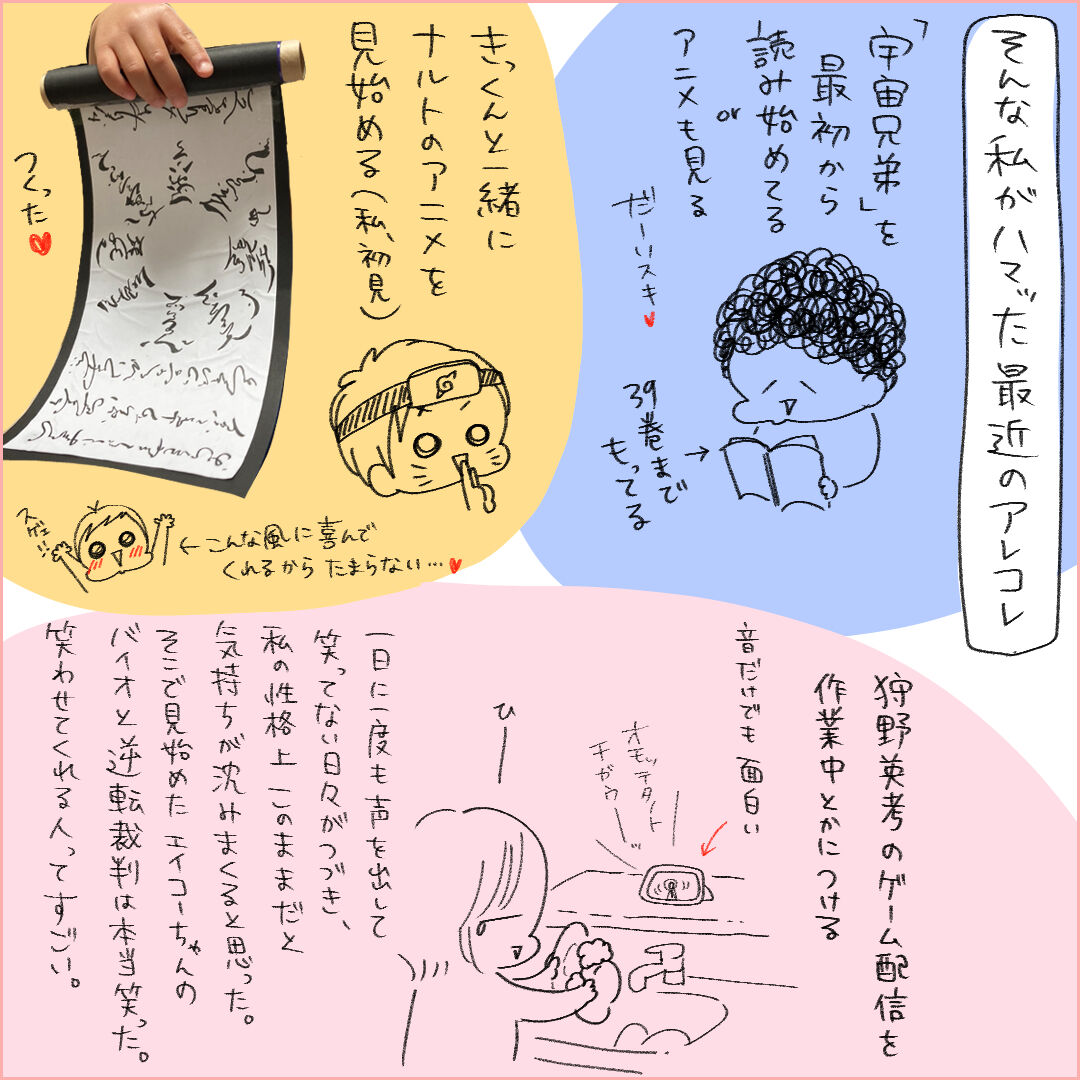 そんな私がハマった最近のアレコレ
「宇宙兄弟」を
最初から
読み始めてる
or
アニメも見る
だーいスキ
39巻まで
もってる
きっくんと一緒に
ナルトのアニメを
見始める(私、初見)
つくった
スゲェ!!
←こんな風に喜んで
くれるから たまらない…
狩野英考のゲーム配信を
作業中とかにつける
音だけでも面白い
オモッテタト
チガウ
ひー
一日に一度も声を出して
笑ってない日々がつづき、
私の性格上このままだと
気持ちが沈みまくると思った。
そこで見始めたエイコーちゃんの
バイオと逆転裁判は本当笑った。
笑わせてくれる人ってすごい。